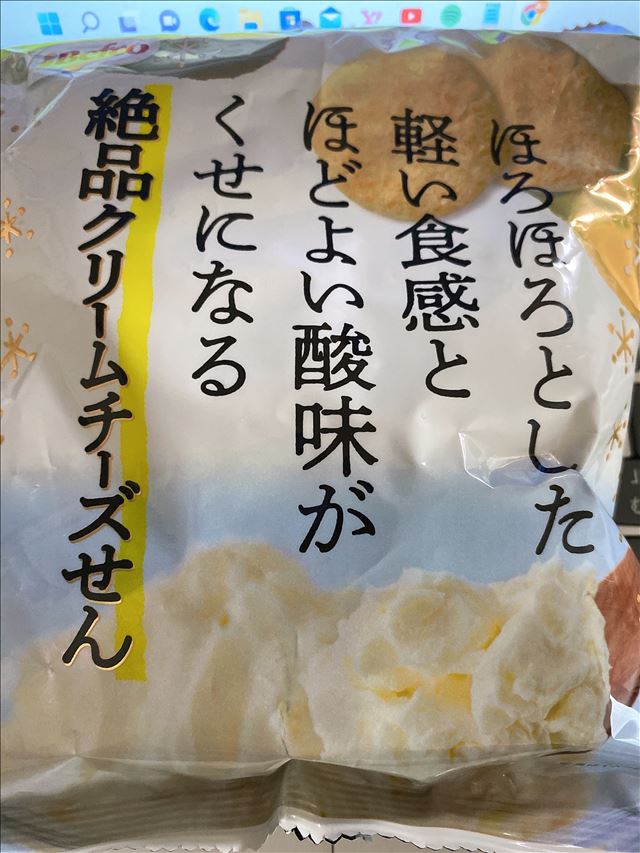 ほろほろとした
軽い食感と
ほどよい酸味が
くせになる
絶品クリームチーズせん